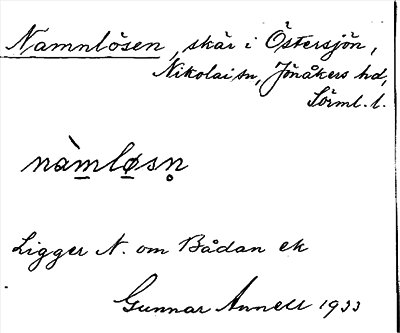 Namnlösen, skär i Östersjön,
Nikolai sn, Jönåkers hd,
Sörml. l.
nàm̲lø̲sn̥
Ligger N. om Bådan ek
Gunnar Annell 1933